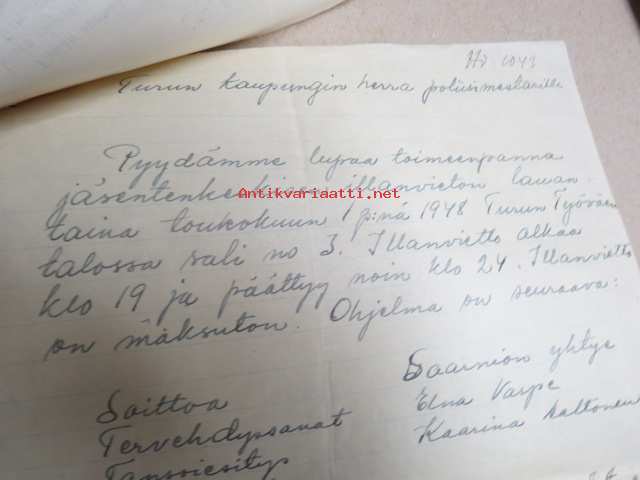 No 1043
Turun kaupungin herra poliisimestarille
Pyydämme lupaa toimeenpanna
jäsentenkeskisen illanvieton lauan-
taina toukokuun 1 p:nä 1948 Turun Työväen
talossa sali no 3. Illanvietto alkaa
klo 19 ja päättyy noin klo 24. Illanvietto
on maksuton. Ohjelma on seuraava:
Soittoa Saarnion yhtye
Tervehdyssanat Elna Varpe
Tanssiesitys Kaarina Aaltonen
Antikvariaatti.net
Antikvariaatti.net
Antikvariaatti.net